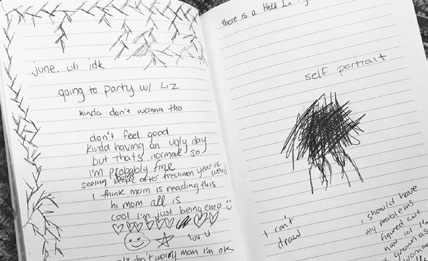 june, uh idk
going to party w/ LIZ
kinda don't wanna tho
don't feel good
kinda having an ugly day
but thats normal so
I'm probably fine
seeing people after freshman year is
I think mom is reading this
hi mom all is
cool i'm just being emo
luv u
don't worry mom i'm ok
there is a Hell
self portrait
I can't
draw
I should have
my problems
figured out